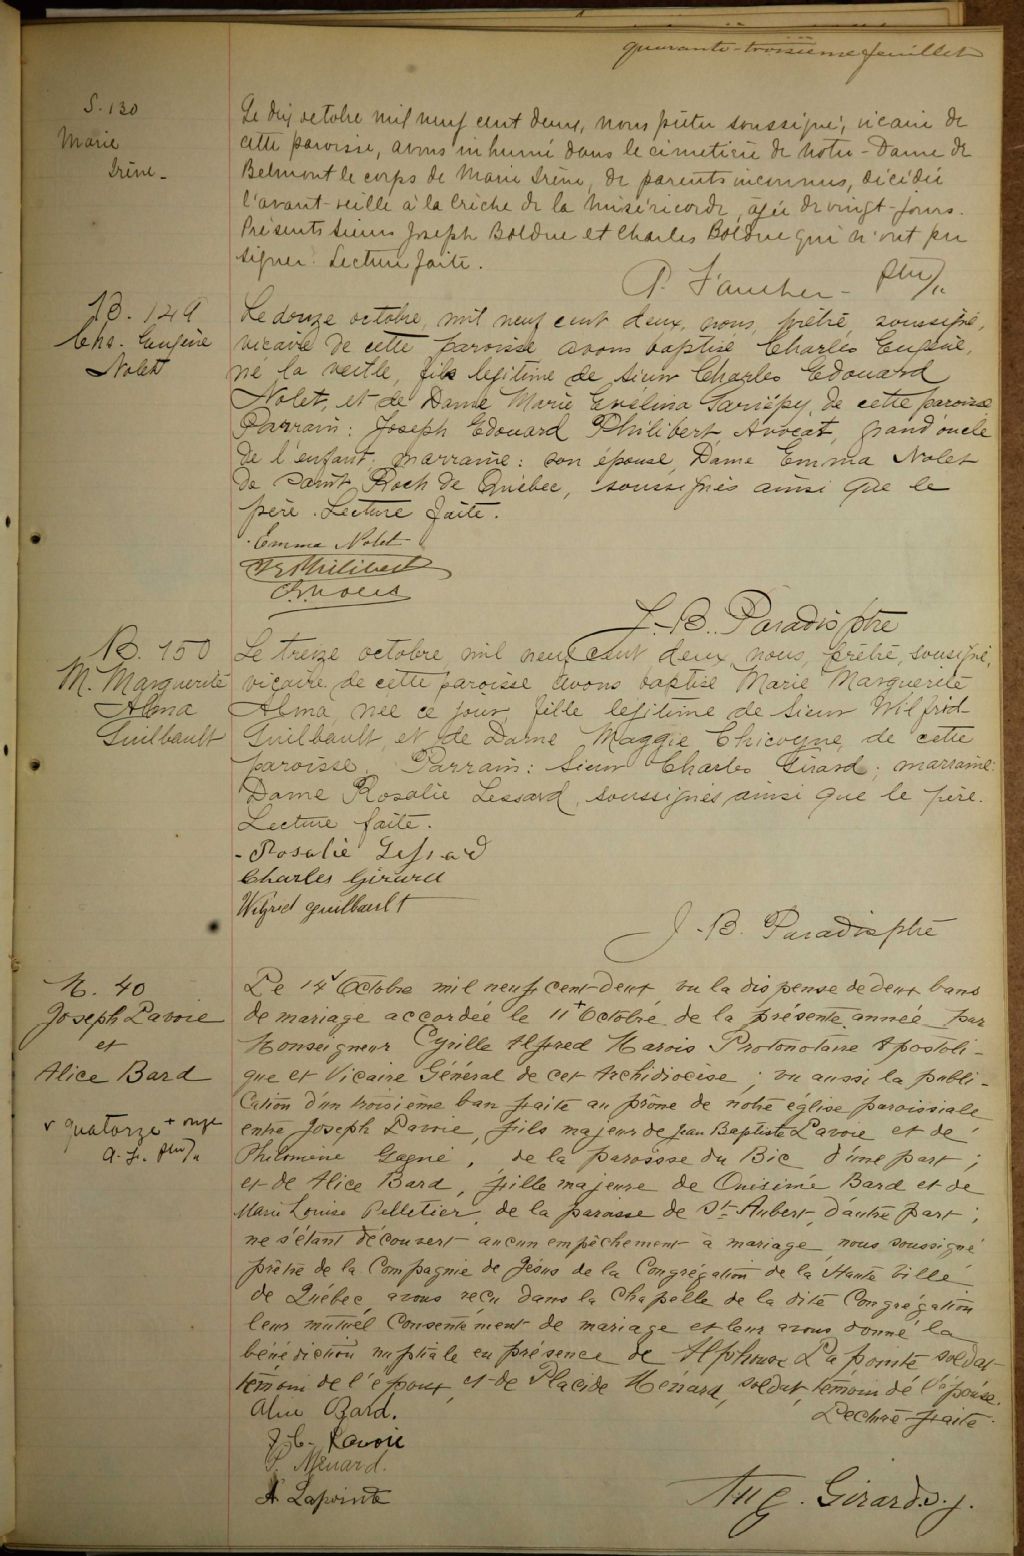 quarante-troisième feuillet
S. 130
Marie
Irène -
Le dix octobre mil neuf cent deux, nous prêtre soussigné, vicaire de
cette paroisse, avons inhumé dans le cimetière de Notre-Dame de
Belmont le corps de Marie Irène, de parents inconnus, décédée
l'avant-veille à la Crèche de la Miséricorde, âgée de vingt-jours.
Présents Sieurs Joseph Bolduc et Charles Bolduc qui n'ont pu
signer. Lecture faite.
P. Faucher - ptre
B. 149
Chs. Eugène
Nolet
Le douze octobre, mil neuf cent deux, nous, prêtre, soussigné,
vicaire de cette paroisse avons baptisé Charles Eugène,
né la veille, fils legitime de Sieur Charles Edouard
Nolet, et de Dame Marie Evélina Gariépy, de cette paroisse
Parrain: Joseph Edouard Philibert, Avocat, grand'oncle
de l'enfant; marraine: son épouse, Dame Emma Nolet
de Saint Roch de Québec, soussignés ainsi que le
père. Lecture faite.
Emma Nolet
J E Philibert
J.-B. Paradis ptre
B. 150
M. Marguerite
Alma
Guilbault
Le treize octobre, mil neuf cent deux, nous, prêtre, sousigné,
vicaire de cette paroisse avons baptisé Marie Marguerite
Alma, née ce jour, fille legitime de Sieur Wilfrid
Guilbault, et de Dame Maggie Chicoyne, de cette
paroisse. Parrain: Sieur Charles Girard; marraine:
Dame Rosalie Lessard, soussignés ainsi que le père.
Lecture faite.
- Rosalie Lessard
Charles Girard
Wilfred guilbault
J.-B. Paradis ptre
M. 40
Joseph Lavoie
et
Alice Bard
v quatorze + onze
a. g. ptre
Le 14 v Octobre mil neuf cent-deux, vu la dispense de deux bans
de mariage accordée le 11 + Octobre de la présente année par
Monseigneur Cyrille Alfred Marois Protonotaire Apostoli-
que et Vicaire Général de cet Archidiocèse; vu aussi la publi-
cation d'un troisième ban faite au prône de notre église paroissiale
entre Joseph Lavoie, fils majeur de Jean Baptiste Lavoie et de
Philomène Gagné, de la paroisse du Bic d'une part;
et de Alice Bard, fille majeure de Onésime Bard et de
Marie Louise Pelletier, de la paroisse de St-Aubert, d'autre part;
ne s'étant découvert aucun empêchement à mariage, nous soussigné
prêtre de la Compagnie de Jésus de la Congrégation de la Haute ville
de Québec, avons reçu dans la Chapelle de la dite Congrégation
leur mutuel consentement de mariage et leur avons donné la
bénédiction nuptiale en présence de Alphonse Lapointe soldat
témoin de l'époux, et de Placide Ménard, soldat, témoin de l'épouse.
Lecture faite.
Alice Bard.
Lavoie
P. Ménard.
A Lapointe
Aug. Girard s. j.